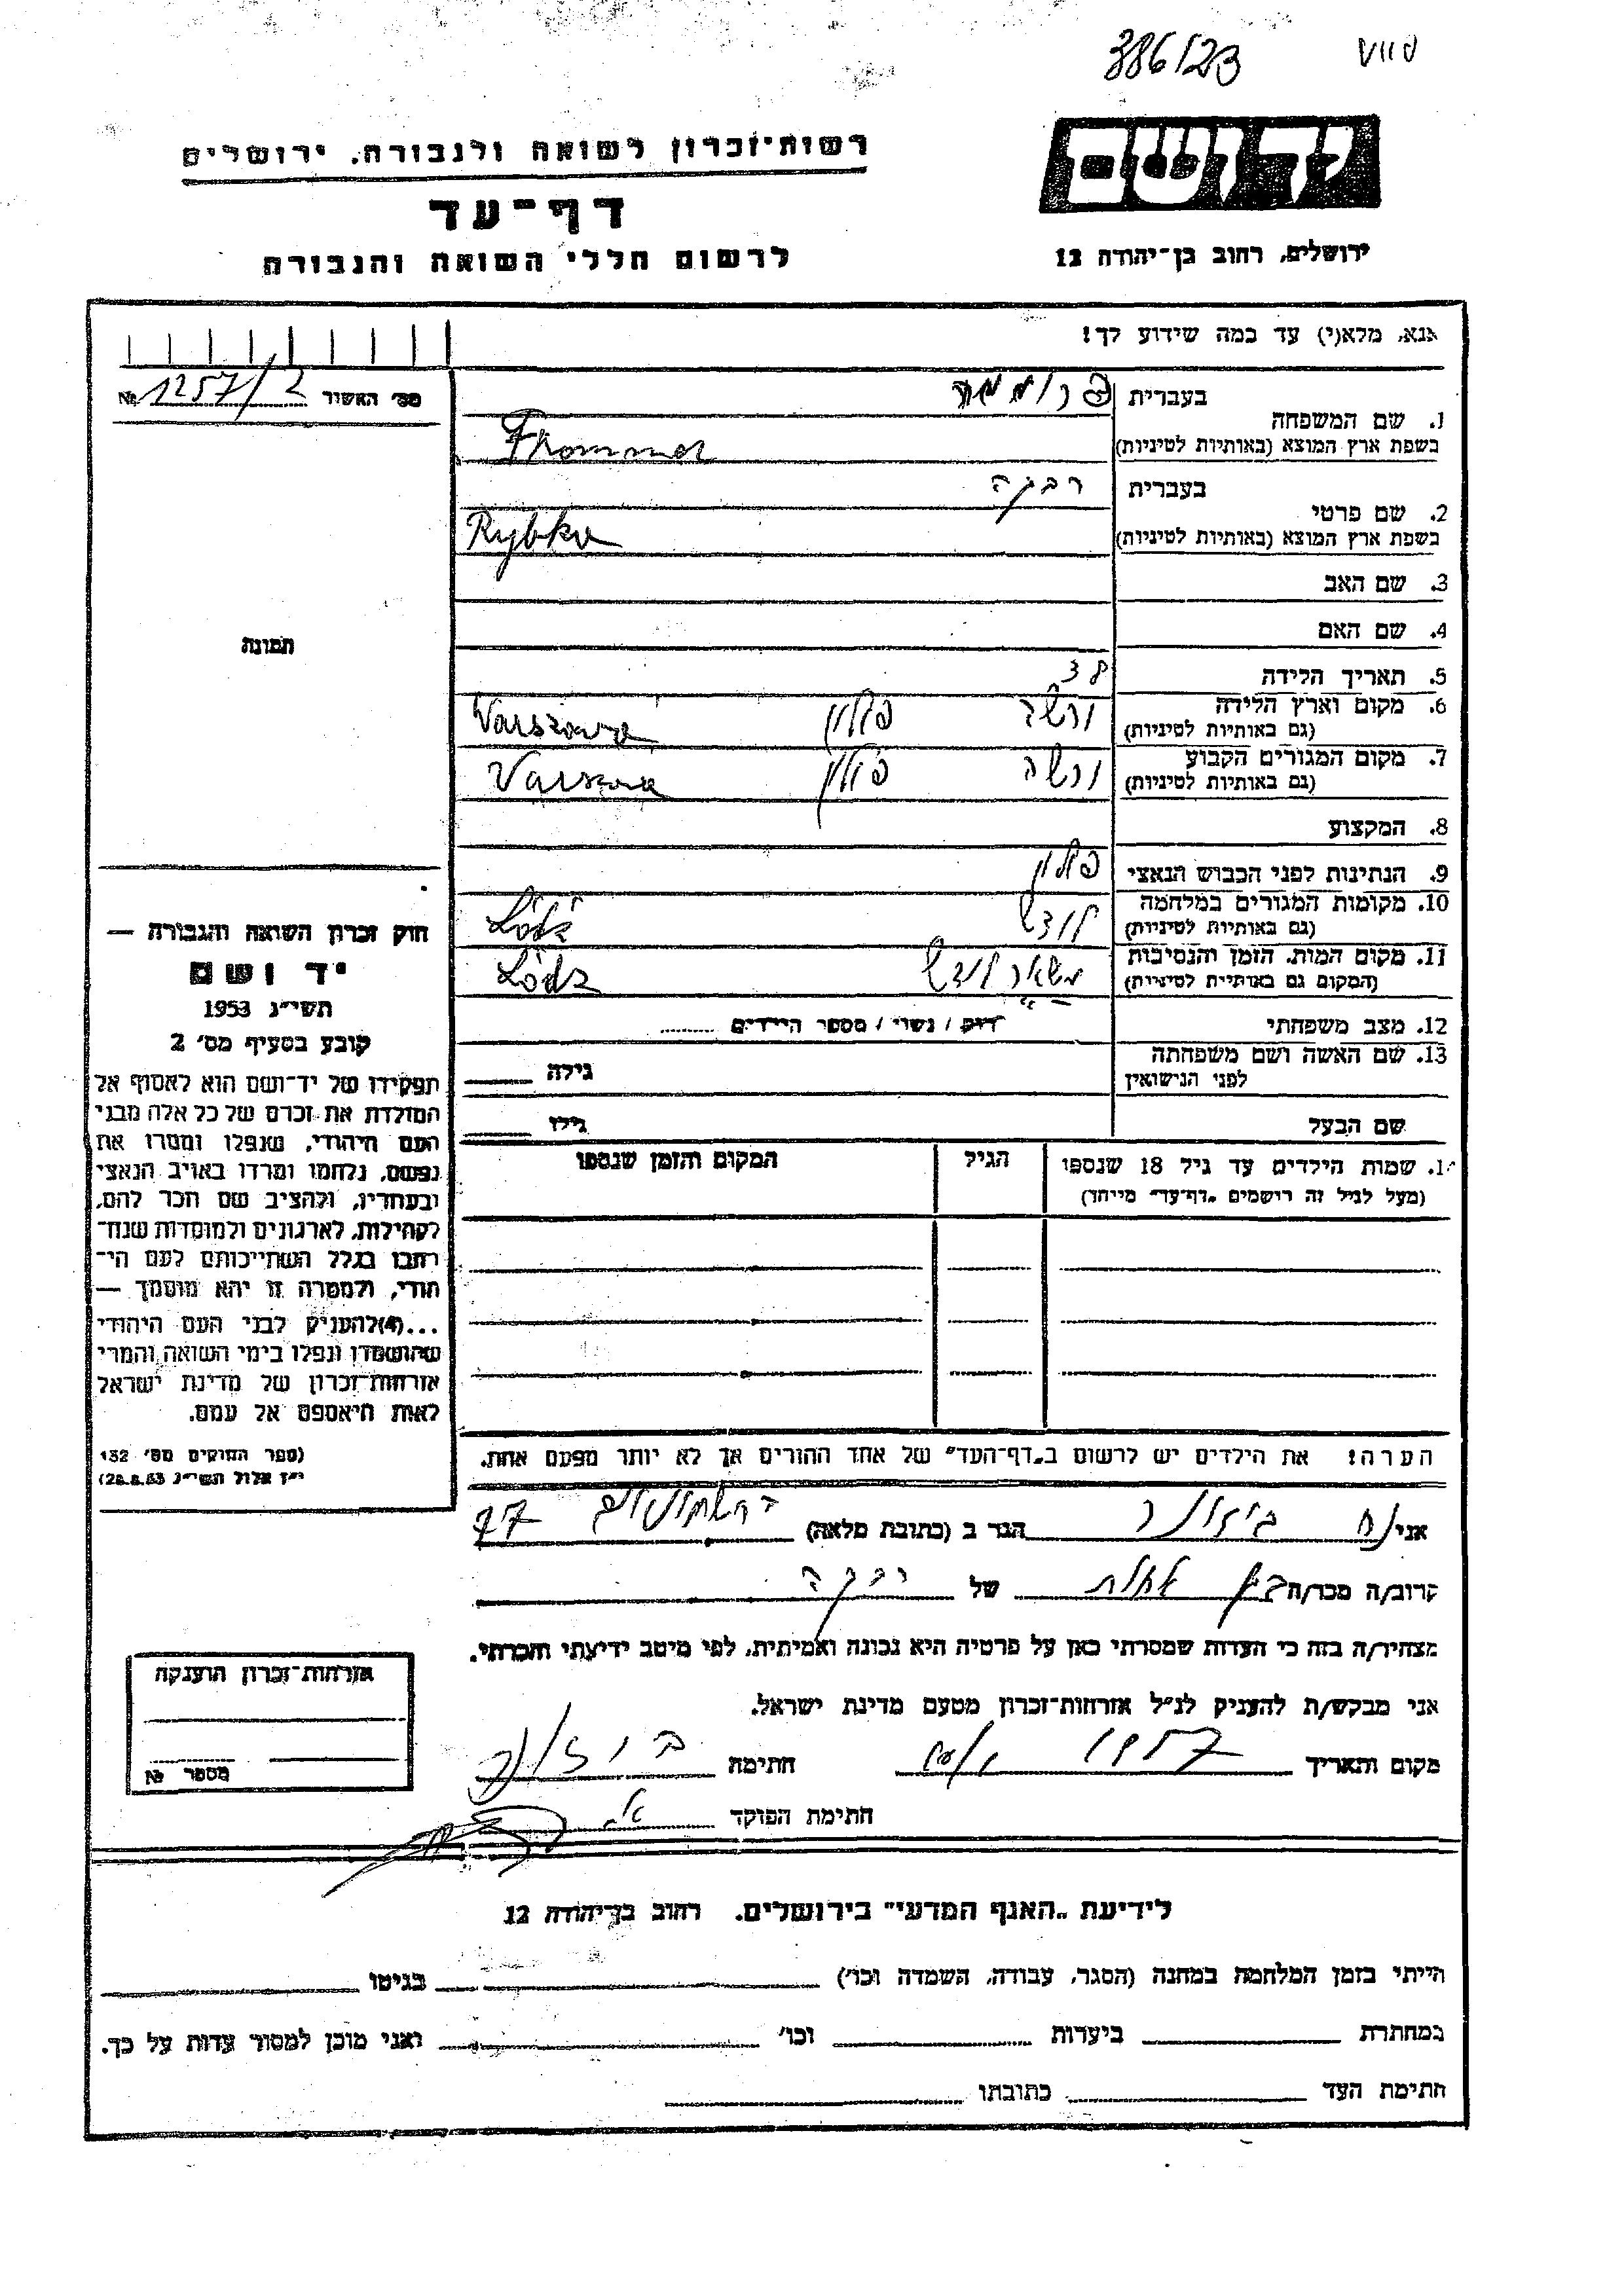 386/23
יד ושם
ירושלים, רחוב בן־יהודה 12
רשות־זכרון לשואה ולגבורה, ירושלים
דף־עד
לרשום חללי השואה והגבורה
אנא, מלא(י) עד כמה שידוע לך!
מס׳ האשור 1257/2 №
1. שם המשפחה
בעברית
בשפת ארץ המוצא (באותיות לטיניות) Frommer
2. שם פרטי
בעברית רבקה
בשפת ארץ המוצא (באותיות לטיניות) Rybka
3. שם האב
4. שם האם
5. תאריך הלידה
6. מקום וארץ הלידה
(גם באותיות לטיניות) ורשה פולין Warszawa
7. מקום המגורים הקבוע
(גם באותיות לטיניות) ורשה פולין
8. המקצוע
9. הנתינות לפני הכבוש הנאצי פולין
10. מקומות המגורים במלחמה
(גם באותיות לטיניות) לודז׳ Łódź
11. מקום המות, הזמן והנסיבות
(המקום גם באותיות לטיניות) Łódz
12. מצב משפחתי רווק / נשוי / מספר הילדים
13. שם האשה ושם משפחתה
לפני הנישואין גילה
שם הבעל גילו
שמות הילדים עד גיל 18 שנספו
(מעל לגיל זה רושמים „דף־עד״ מייחד)
הגיל
המקום והזמן שנספו
הערה! את הילדים יש לרשום ב„דף־העד״ של אחד ההורים אך לא יותר מפעם אחת.
תמונה
חוק זכרון השואה והגבורה —
יד ושם
תשי״ג 1953
קובע בסעיף מס׳ 2
תפקידו של יד־ושם הוא לאסוף אל
המולדת את זכרם של כל אלה מבני
העם היהודי, שנפלו ומסרו את
נפשם, נלחמו ומרדו באויב הנאצי
ובעוזריו, ולהציב שם וזכר להם,
לקהילות, לארגונים ולמוסדות שנח־
רבו בגלל השתייכותם לעם הי־
הודי, ולמטרה זו יהא מוסמך —
...(4) להעניק לבני העם היהודי
שהושמדו ונפלו בימי השואה והמרי
אזרחות־זכרון של מדינת ישראל
לאות היאספם אל עמם.
(ספר החוקים מס׳ 132
י״ז אלול תשי״ג 28.8.53)
אני הגר ב (כתובת מלאה)
קרוב/ה מכר/ה של רבקה
מצהיר/ה בזה כי העדות שמסרתי כאן על פרטיה היא נכונה ואמיתית, לפי מיטב ידיעתי והכרתי.
אני מבקש/ת להעניק לנ״ל אזרחות־זכרון מטעם מדינת ישראל.
מקום ותאריך 1957 חתימה
חתימת הפוקד
אזרחות־זכרון הוענקה
מספר №
לידיעת „האגף המדעי״ בירושלים. רחוב בן־יהודה 12
הייתי בזמן המלחמה במחנה (הסגר, עבודה, השמדה וכו׳) בגיטו
במחתרת ביערות וכו׳ ואני מוכן למסור עדות על כך.
חתימת העד כתובתו